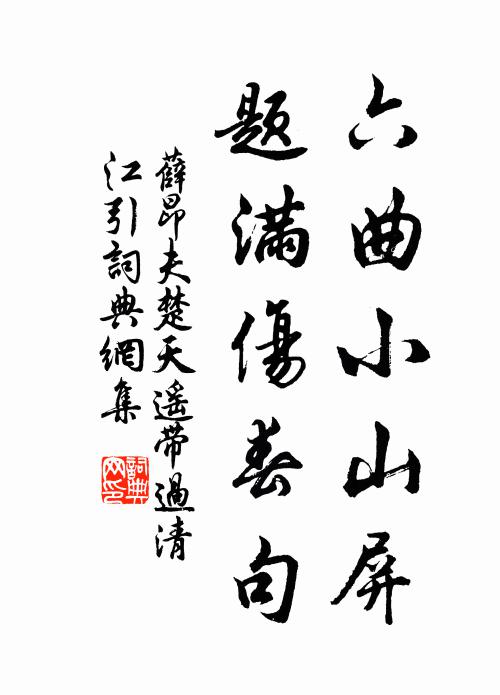 六曲小山屏
题满傷春句
薛昂夫楚天遥带過清
江引詞典網集
詞典
网印